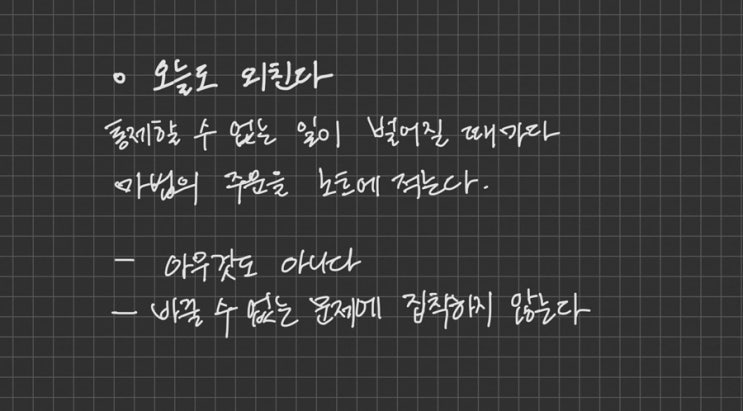 • 오늘도 외친다
통제할 수 없는 일이 벌어질 때마다
마법의 주문을 노트에 적는다.
- 아무것도 아니다
- 바꿀 수 없는 문제에 집착하지 않는다